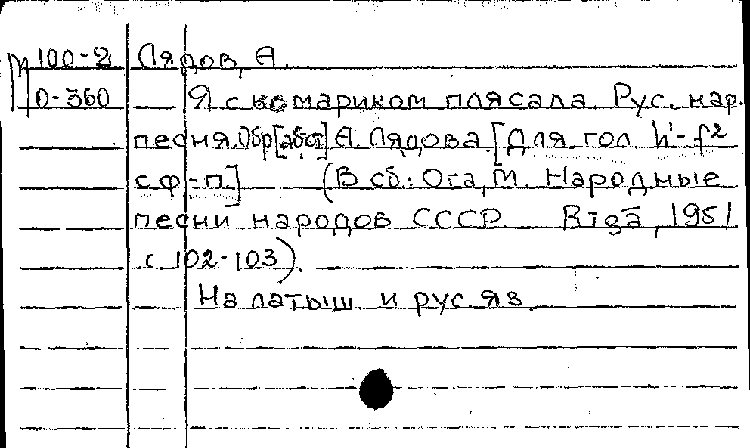 М 100-2 Лядов, А.
О-360 Я с комариком плясала. Рус. нар.
песня. Обр[абот] А. Лядова. [Для гол. h'-f²
с ф.-п.] (В сб.: Ога, М. Народные
песни народов СССР. Rīgā, 1951
с 102-103).
На латыш. и рус яз.